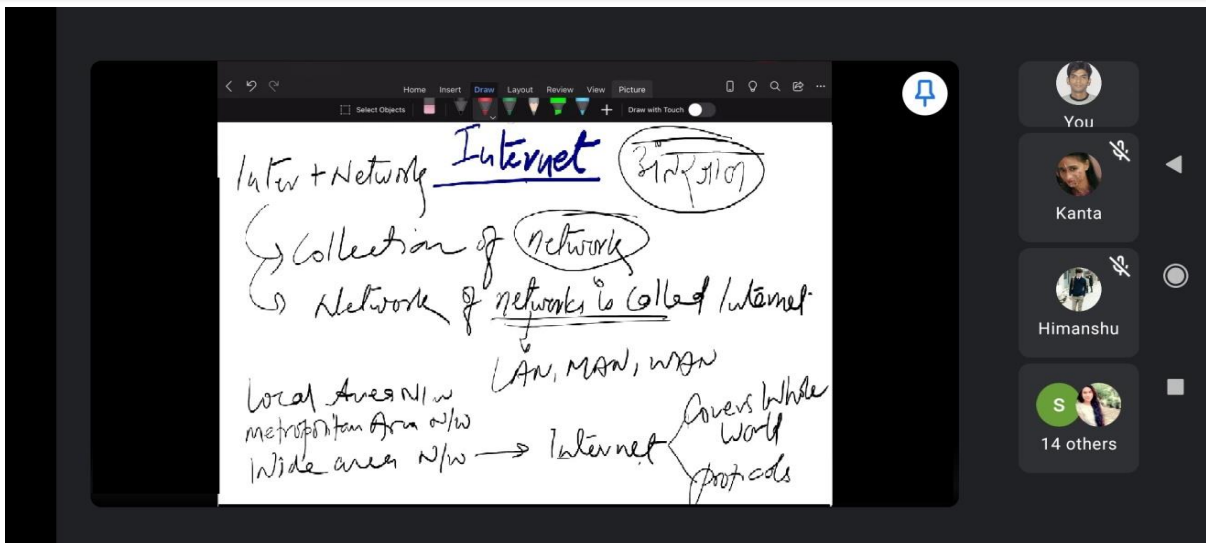 Home Insert Draw Layout Review View Picture
Select Objects
Draw with Touch
Internet
Inter + Network
अंतरजाल
Collection of network
Network of networks is called Internet.
LAN, MAN, WAN
Local Area N/w
Metropolitan Area N/w
Wide area N/w → Internet
Covers Whole
World
protocols
You
Kanta
Himanshu
S
14 others